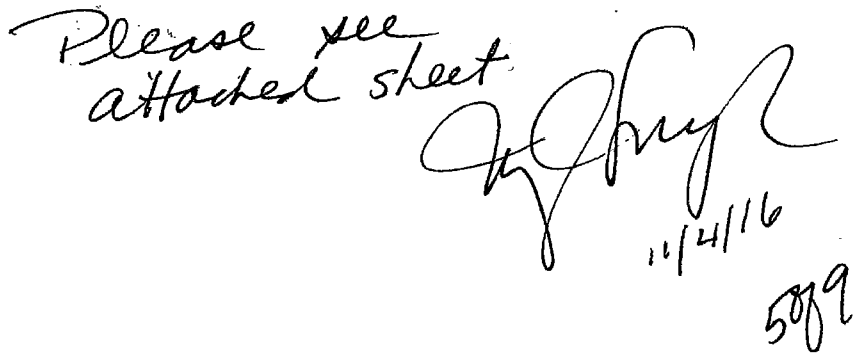 Please see
attached sheet.
11/4/16
5 of 9